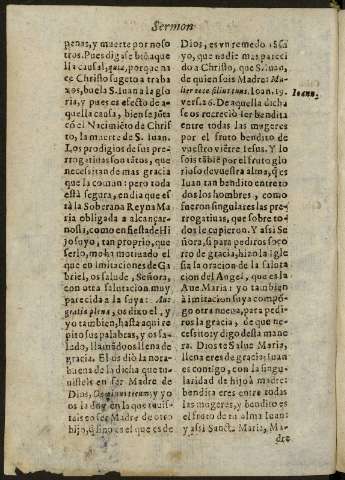 Sermon
penas, y muerte por noso
tros. Pues digase bie aque
lla causal, quia, porque na
ce Christo sugeto a traba
xos, buela S. Iuan a la glo
ria, y pues es efecto de a-
quella causa, bien se jũta
cõ el Nacimiẽto de Christ
to, la muerte de S. Iuan.
Los prodigios de sus pre-
rrogatiuas son tãtos, que
necessitan de mas gracia
que la comun: pero toda
està segura, en dia que es
tà la Soberana Reyna Ma
ria obligada a alcançar-
nosla, como en fiesta de Hi
jo suyo, tan proprio, que
serlo, me ha motiuado el
que en imitaciones de Ga
briel, os salude, Señora,
con otra salutacion muy
parecida a la suya: Aue
gratia plena, os dixo el, y
yo tambien, hasta aqui re
pito sus palabras, y os sa-
ludo, llamãdoos llena de
gracia. El os diò la nora-
buena de la dicha que tu-
uisteis en ser Madre de
Dios, Dominus tecum, y yo
os la doy en la que tuuis-
teis en ser Madre de otro
hijo, q̃ sino es el que es de
Dios, es vn remedo tã su
yo, que nadie mas pareci
do a Christo, que S. Iuan,
de quien sois Madre: Mu
lier ecce filius tuus. Ioan. 19.
vers. 26. De aquella dicha
se os recreciò ser bendita
entre todas las mugeres
por el fruto bendito de
vuestro viẽtre Iesus. Y lo
sois tãbiẽ por el fruto glo
rioso de vuestra alma, q̃ es
Iuan tan bendito entre to
dos los hombres, como
fueron singulares las pre
rrogatiuas, que sobre to-
dos le cupieron. Y assi Se
ñora, si para pediros soco
rro de gracia, hizo la Igle
sia la oracion de la saluta
cion del Angel, que es la
Aue Maria: yo tambien
à imitacion suya compõ-
go otra nueua, para pedi
ros la gracia, de que ne-
cessito: y digo desta mane
ra. Dios te Salue Maria,
llena eres de gracia: Iuan
es contigo, con la singu-
laridad de hijo à madre:
bendita eres entre todas
las mugeres, y bendito es
el fruto de tu alma Iuan:
y assi Sancta Maria, Ma-
dre
Ioann.